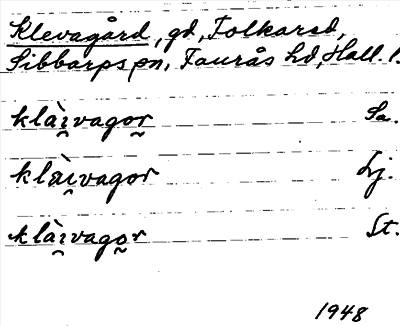 Klevagård, gd, Folkared,
Sibbarps sn, Faurås hd, Hall. l.
klàı̯vagor̯ Sa.
klàı̯vagor Lj.
klàı̯vago̯r St.
1948